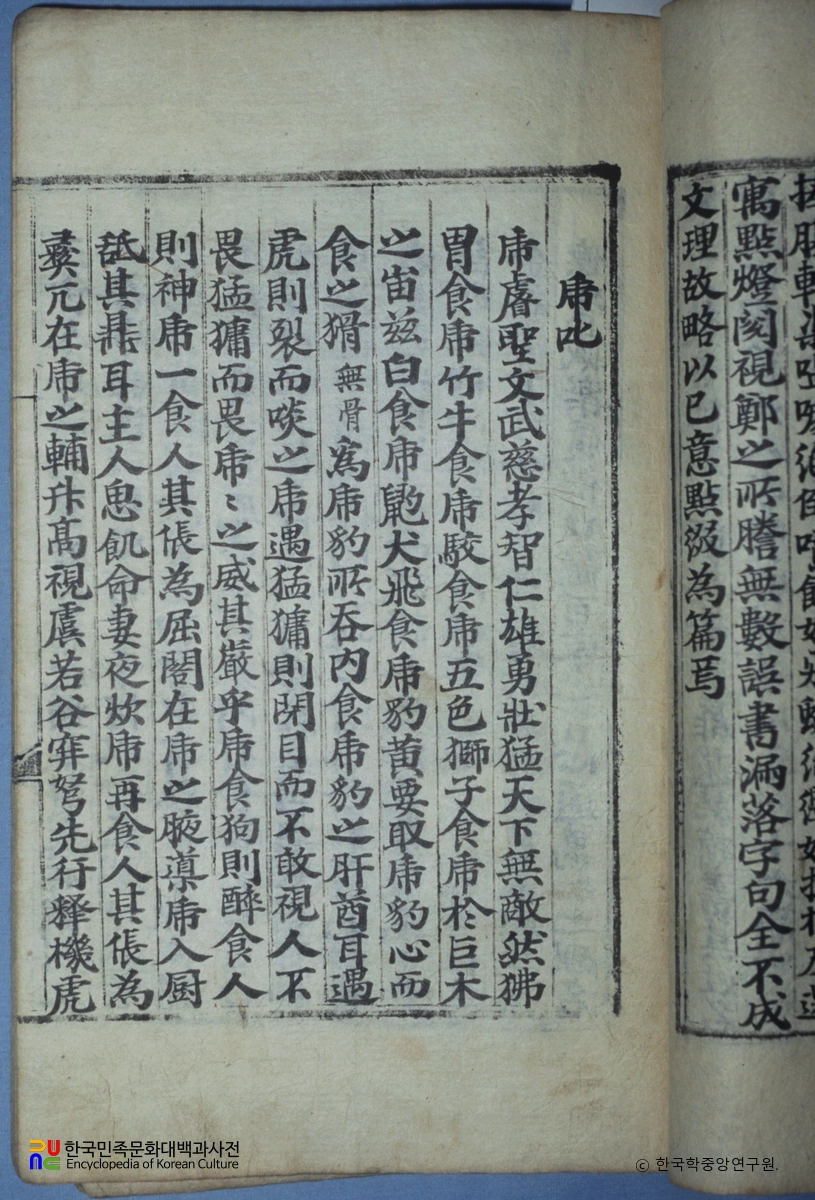 寓點燈閱視鄭之所謄無數誤書漏落字句全不成
文理故略以己意點綴為篇焉
虎叱
虎睿聖文武慈孝智仁雄勇壯猛天下無敵然狒
胃食虎竹牛食虎駮食虎五色獅子食虎於巨木
之岫玆白食虎䶂犬飛食虎豹黃要取虎豹心而
食之猾無骨為虎豹所吞內食虎豹之肝酋耳遇
虎則裂而啖之虎遇猛㺎則閉目而不敢視人不
畏猛㺎而畏虎〻之威其嚴乎虎食狗則醉食人
則神虎一食人其倀為屈閣在虎之腋導虎入厨
舐其鼎耳主人思飢命妻夜炊虎再食人其倀為
彛兀在虎之輔升高視虞若谷穽弩先行釋機虎
한국민족문화대백과사전
Encyclopedia of Korean Culture
ⓒ 한국학중앙연구원.